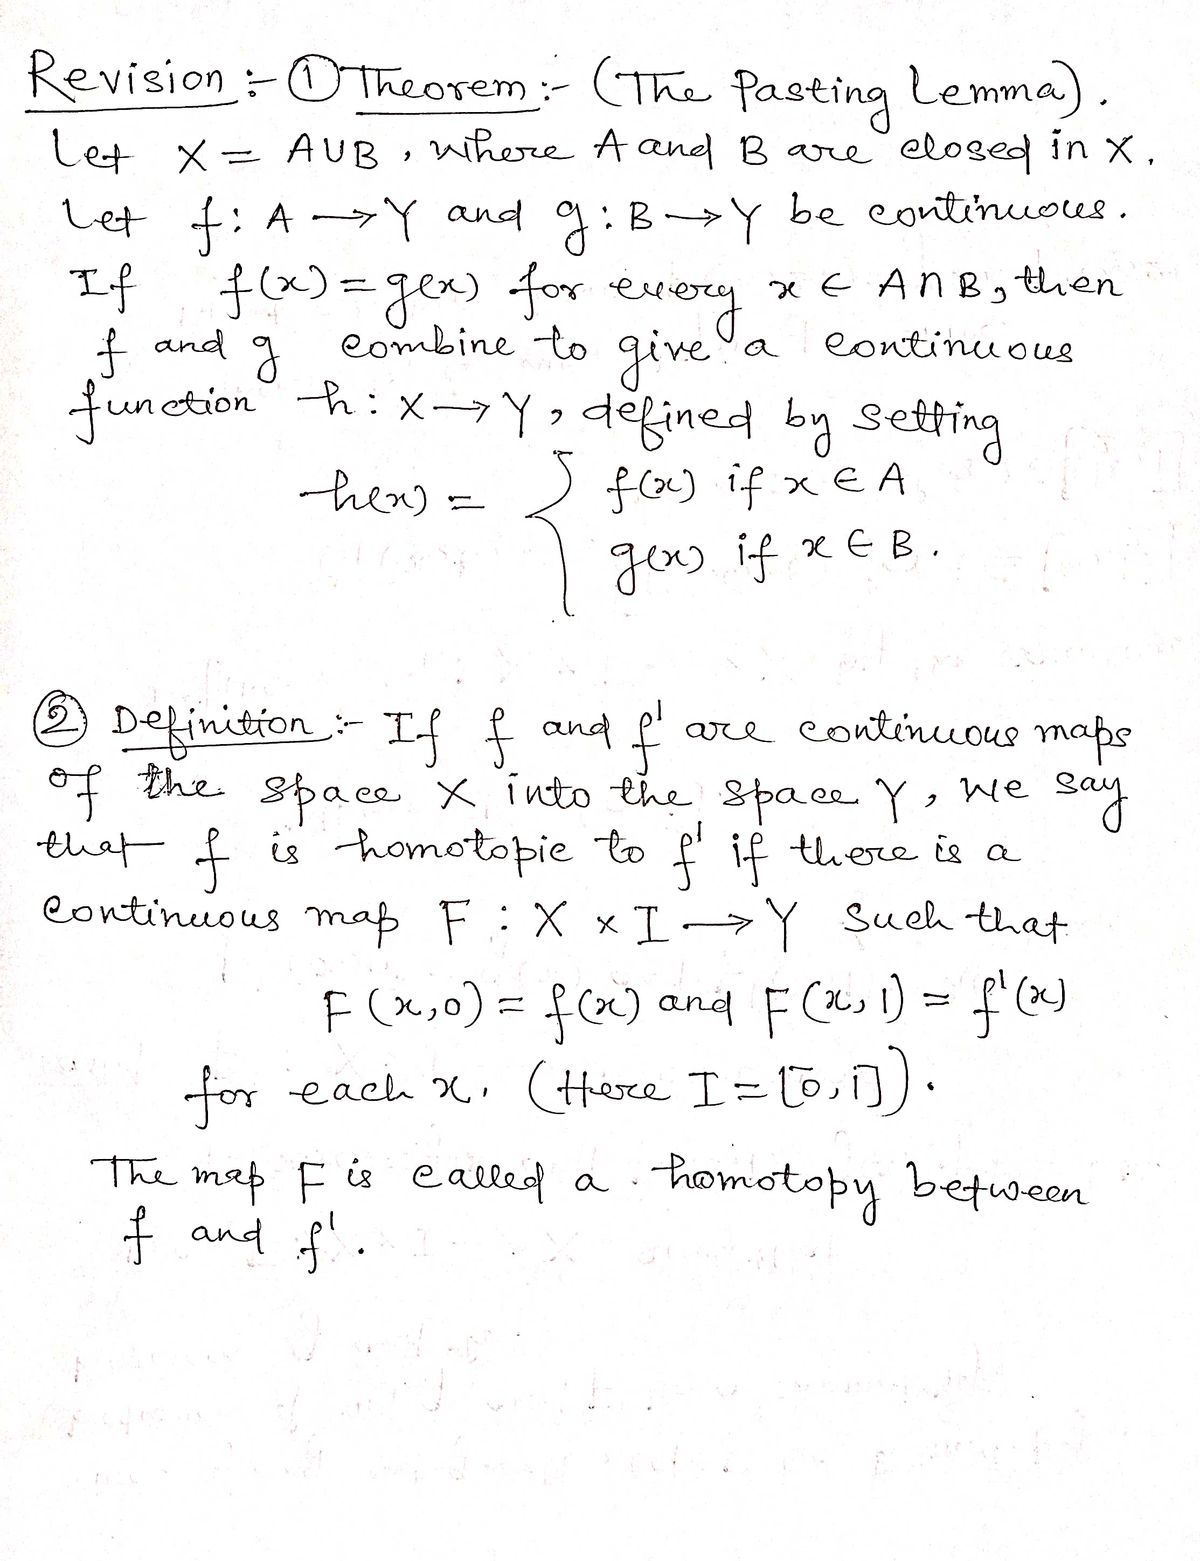 Revision :- ① Theorem :- (The Pasting Lemma).
Let X = A∪B, where A and B are closed in X.
Let f: A → Y and g: B → Y be continuous.
If f(x) = g(x) for every x ∈ A∩B, then
f and g combine to give a continuous
function h: X → Y, defined by setting
h(x) = { f(x) if x ∈ A
g(x) if x ∈ B.
② Definition :- If f and f' are continuous maps
of the space X into the space Y, we say
that f is homotopic to f' if there is a
continuous map F : X × I → Y such that
F(x,0) = f(x) and F(x,1) = f'(x)
for each x. (Here I = [0,1]).
The map F is called a homotopy between
f and f'.